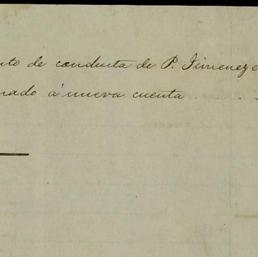 nto de conducta de P. Jimenez
nado á nueva cuenta